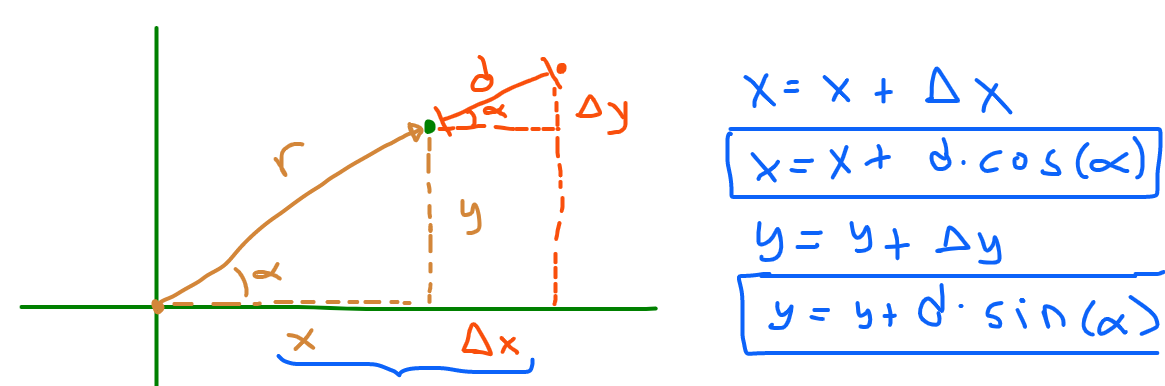 d
α
Δy
r
y
α
x
Δx
x = x + Δx
x = x + d·cos(α)
y = y + Δy
y = y + d·sin(α)